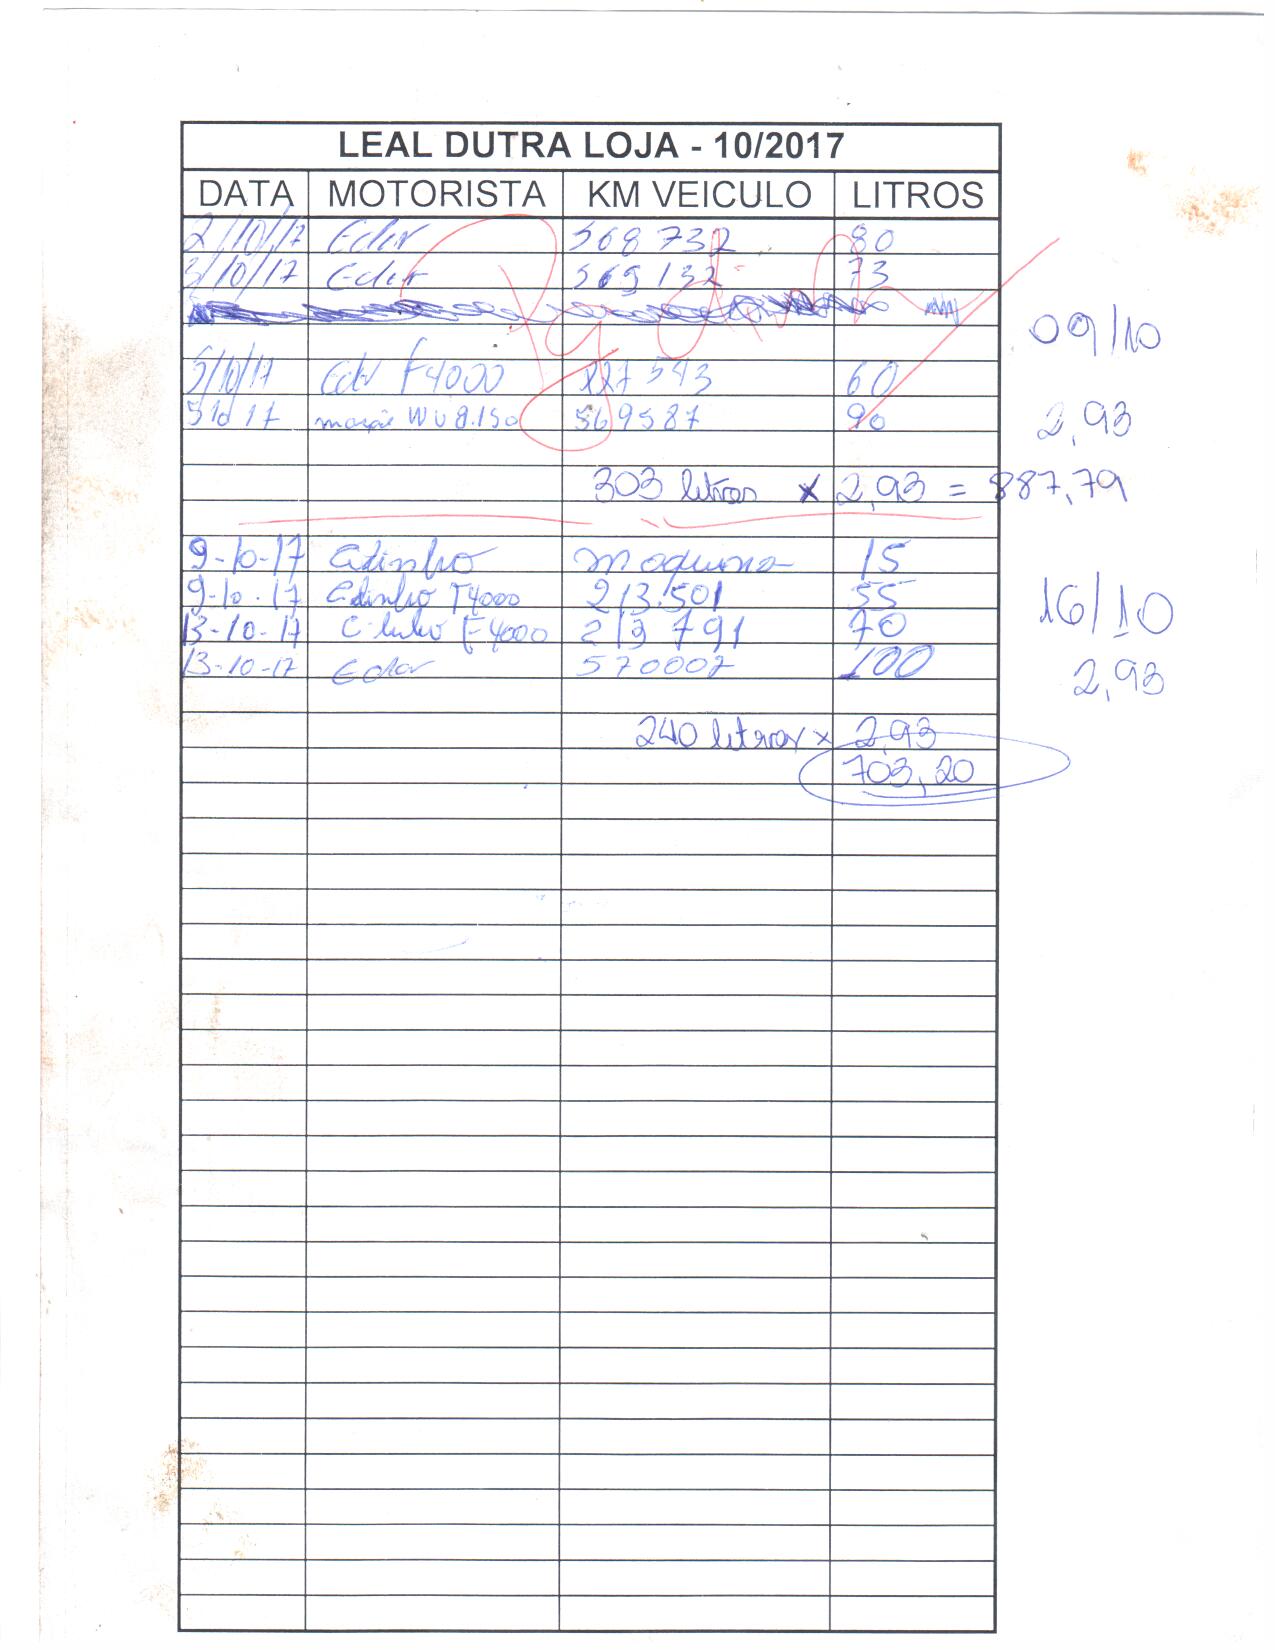 LEAL DUTRA LOJA - 10/2017
DATA MOTORISTA KM VEICULO LITROS
2/10/17 Edir 568 732 80
3/10/17 Edir 569 132 73
09/10
5/10/17 Edir F4000 543 60
5 10 17 569587 90
2,93
303 litros x 2,93 = 887,79
9-10-17 Edinho Maquina 15
9-10-17 Edinho F4000 213.501 55
16/10
13-10-17 F4000 213 791 70
13-10-17 570007 100
2,93
240 litros x 2,93
703,20